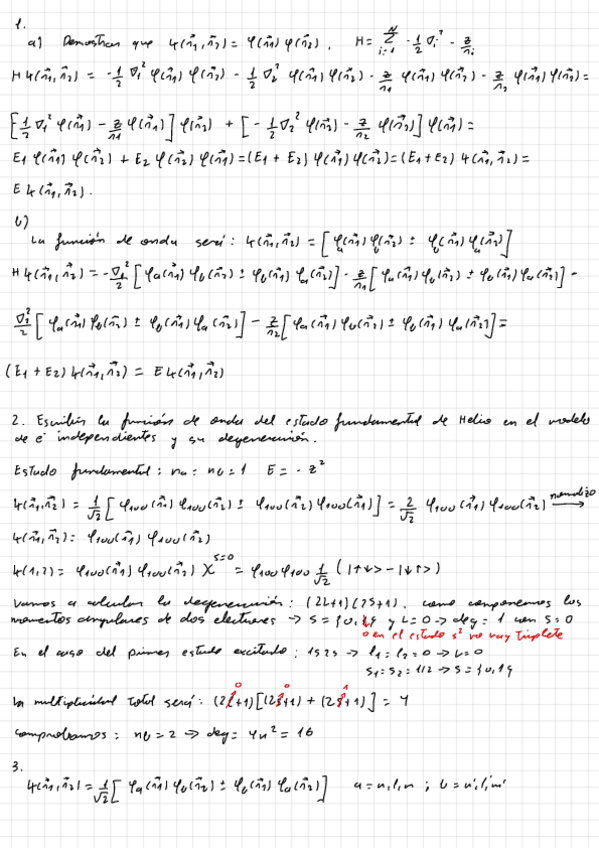 1.
a) Demostrar que Ψ(r⃗1, r⃗2) = φ(r⃗1) φ(r⃗2). H = Σ_{i=1}^{N} -1/2 ∇i² - z/ri
H Ψ(r⃗1, r⃗2) = -1/2 ∇1² φ(r⃗1) φ(r⃗2) - 1/2 ∇2² φ(r⃗1) φ(r⃗2) - z/r1 φ(r⃗1) φ(r⃗2) - z/r2 φ(r⃗1) φ(r⃗2) =
[-1/2 ∇1² φ(r⃗1) - z/r1 φ(r⃗1)] φ(r⃗2) + [-1/2 ∇2² φ(r⃗2) - z/r2 φ(r⃗2)] φ(r⃗1) =
E1 φ(r⃗1) φ(r⃗2) + E2 φ(r⃗2) φ(r⃗1) = (E1 + E2) φ(r⃗1) φ(r⃗2) = (E1 + E2) Ψ(r⃗1, r⃗2) =
E Ψ(r⃗1, r⃗2).
b)
La función de onda será: Ψ(r⃗1, r⃗2) = [φa(r⃗1) φb(r⃗2) ± φb(r⃗1) φa(r⃗2)]
H Ψ(r⃗1, r⃗2) = -∇1²/2 [φa(r⃗1) φb(r⃗2) ± φb(r⃗1) φa(r⃗2)] - z/r1 [φa(r⃗1) φb(r⃗2) ± φb(r⃗1) φa(r⃗2)] -
∇2²/2 [φa(r⃗1) φb(r⃗2) ± φb(r⃗1) φa(r⃗2)] - z/r2 [φa(r⃗1) φb(r⃗2) ± φb(r⃗1) φa(r⃗2)] =
(E1 + E2) Ψ(r⃗1, r⃗2) = E Ψ(r⃗1, r⃗2)
2. Escribir la función de onda del estado fundamental de Helio en el modelo
de e⁻ independientes y su degeneración.
Estado fundamental: na = nb = 1 E = -z²
Ψ(r⃗1, r⃗2) = 1/√2 [φ100(r⃗1) φ100(r⃗2) ± φ100(r⃗2) φ100(r⃗1)] = 2/√2 φ100(r⃗1) φ100(r⃗2) normalizo →
Ψ(r⃗1, r⃗2) = φ100(r⃗1) φ100(r⃗2)
Ψ(1,2) = φ100(r⃗1) φ100(r⃗2) χ^{S=0} = φ100 φ100 1/√2 (|↑↓> - |↓↑>)
Vamos a calcular la degeneración: (2L+1)(2S+1). como componemos los
momentos angulares de dos electrones → S = {0,1} y L = 0 → deg = 1 con S = 0
0 en el estado s² no hay triplete
En el caso del primer estado excitado: 1s2s → l1 = l2 = 0 → L = 0
s1 = s2 = 1/2 → S = {0,1}
La multiplicidad total será: (2L+1)[(2S+1) + (2S+1)] = 4
0 0 1
comprobamos: nb = 2 → deg = 4n² = 16
3.
Ψ(r⃗1, r⃗2) = 1/√2 [φa(r⃗1) φb(r⃗2) ± φb(r⃗1) φa(r⃗2)] a = n,l,m ; b = n',l',m'